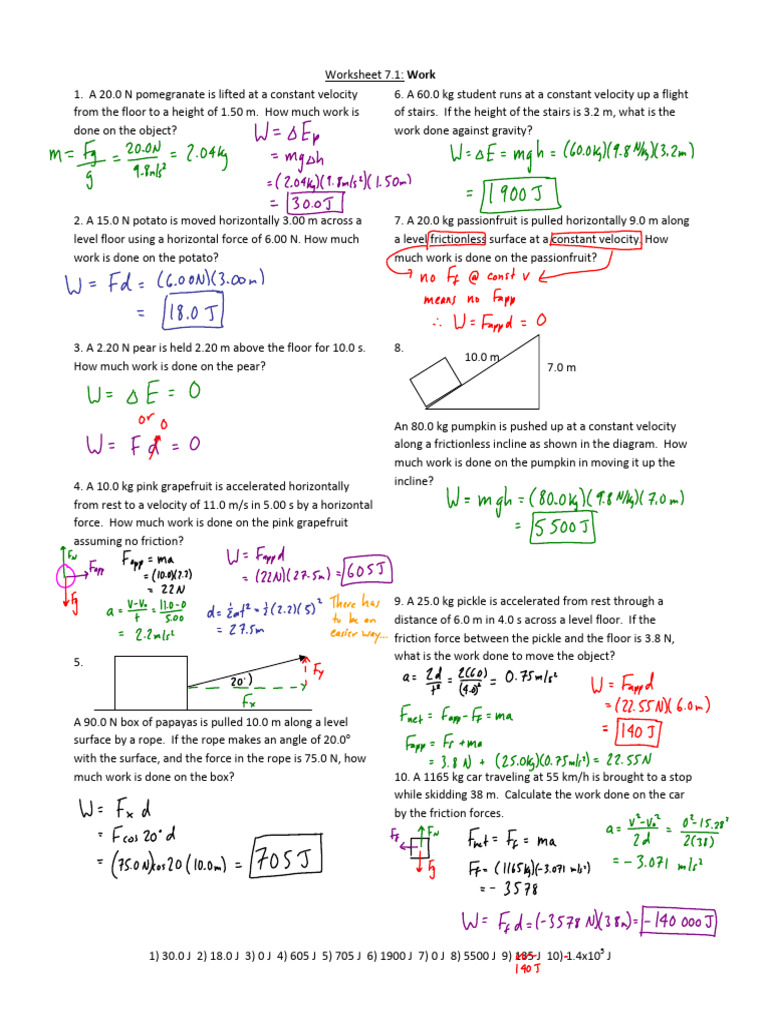 Worksheet 7.1: Work
1. A 20.0 N pomegranate is lifted at a constant velocity
from the floor to a height of 1.50 m. How much work is
done on the object?
W = ΔEp
m = Fg/g = 20.0N/9.8m/s² = 2.04kg
= mgΔh
= (2.04kg)(9.8m/s²)(1.50m)
= 30.0J
2. A 15.0 N potato is moved horizontally 3.00 m across a
level floor using a horizontal force of 6.00 N. How much
work is done on the potato?
W = Fd = (6.00N)(3.00m)
= 18.0 J
3. A 2.20 N pear is held 2.20 m above the floor for 10.0 s.
How much work is done on the pear?
W = ΔE = 0
or
0
W = Fd = 0
4. A 10.0 kg pink grapefruit is accelerated horizontally
from rest to a velocity of 11.0 m/s in 5.00 s by a horizontal
force. How much work is done on the pink grapefruit
assuming no friction?
FN
Fapp
Fg
Fapp = ma
= (10.0)(2.2)
= 22N
W = Fapp d
= (22N)(27.5m) = 605J
a = v-v₀/t = 11.0-0/5.00
= 2.2m/s²
d = ½at² = ½(2.2)(5)²
= 27.5m
There has
to be an
easier way...
5.
20°
Fy
Fx
A 90.0 N box of papayas is pulled 10.0 m along a level
surface by a rope. If the rope makes an angle of 20.0°
with the surface, and the force in the rope is 75.0 N, how
much work is done on the box?
W = Fx d
= Fcos20° d
= (75.0N)cos20(10.0m) = 705J
6. A 60.0 kg student runs at a constant velocity up a flight
of stairs. If the height of the stairs is 3.2 m, what is the
work done against gravity?
W = ΔE = mgh = (60.0kg)(9.8N/kg)(3.2m)
= 1900 J
7. A 20.0 kg passionfruit is pulled horizontally 9.0 m along
a level frictionless surface at a constant velocity. How
much work is done on the passionfruit?
no Ff @ const v
means no Fapp
∴ W = Fapp d = 0
8.
10.0 m
7.0 m
An 80.0 kg pumpkin is pushed up at a constant velocity
along a frictionless incline as shown in the diagram. How
much work is done on the pumpkin in moving it up the
incline?
W = mgh = (80.0kg)(9.8N/kg)(7.0m)
= 5500J
9. A 25.0 kg pickle is accelerated from rest through a
distance of 6.0 m in 4.0 s across a level floor. If the
friction force between the pickle and the floor is 3.8 N,
what is the work done to move the object?
a = 2d/t² = 2(6.0)/(4.0)² = 0.75m/s²
Fnet = Fapp - Ff = ma
Fapp = Ff + ma
= 3.8N + (25.0kg)(0.75m/s²) = 22.55N
W = Fapp d
= (22.55N)(6.0m)
= 140J
10. A 1165 kg car traveling at 55 km/h is brought to a stop
while skidding 38 m. Calculate the work done on the car
by the friction forces.
Ff
FN
Fg
Fnet = Ff = ma
Ff = (1165kg)(-3.071 m/s²)
= -3578
a = v²-v₀²/2d = 0²-15.28²/2(38)
= -3.071 m/s²
W = Ff d = (-3578N)(38m) = -140 000 J
1) 30.0 J 2) 18.0 J 3) 0 J 4) 605 J 5) 705 J 6) 1900 J 7) 0 J 8) 5500 J 9) 185 J 10) -1.4x10⁵ J
140J